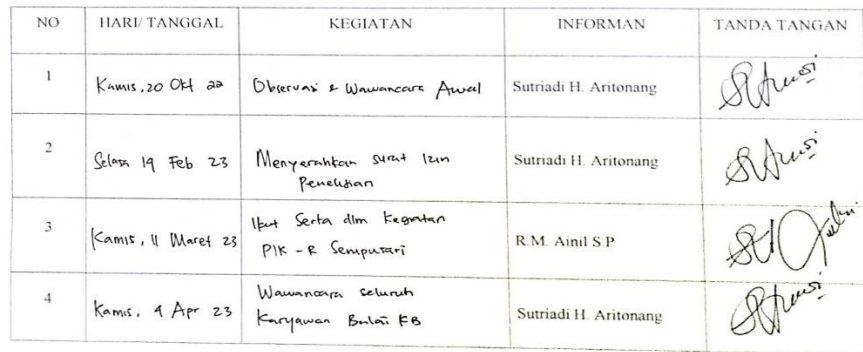 NO HARI/ TANGGAL KEGIATAN INFORMAN TANDA TANGAN
1 Kamis, 20 Okt 22 Observasi & Wawancara Awal Sutriadi H. Aritonang
2 Selasa 19 Feb 23 Menyerahkan Surat Izin Penelitian Sutriadi H. Aritonang
3 Kamis, 11 Maret 23 Ikut Serta dlm Kegiatan
PIK - R Sempusari R.M. Ainil S.P
4 Kamis, 4 Apr 23 Wawancara seluruh
Karyawan Balai KB Sutriadi H. Aritonang